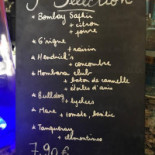 Sélection
* Bombay Saphir
+ citron
+ poivre
* G'vigne
+ raisin
* Hendrick's
+ concombre
* Mombasa club
+ baton de cannelle
+ étoiles d'anis
* Bulldog
+ lychees
* Mare
+ tomate basilic
* Tanqueray
+ clémentines
7,90€